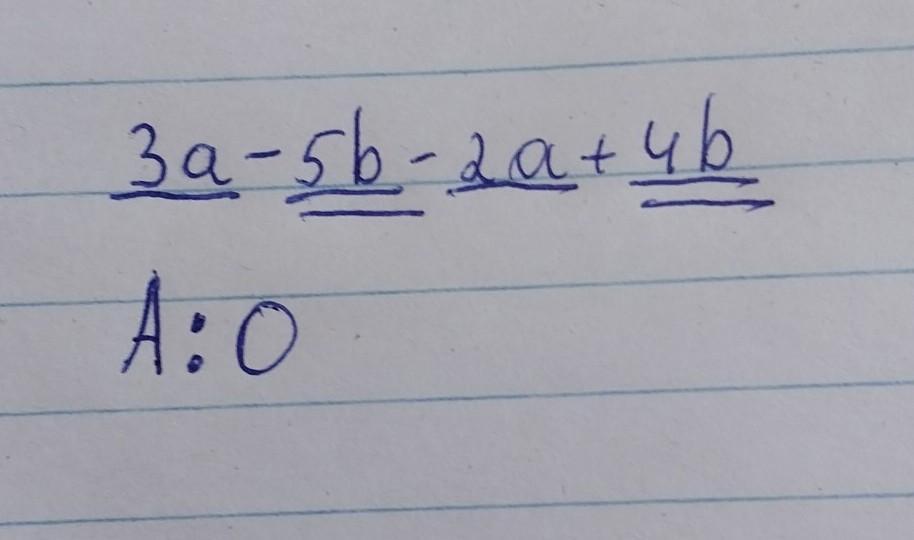 3a - 5b - 2a + 4b
A: 0